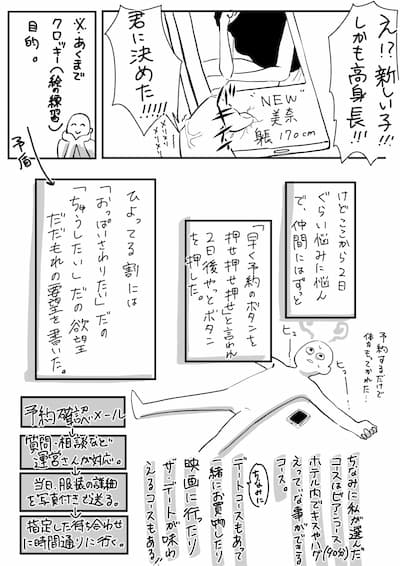 え!?新しい子!!
しかも高身長!!!
"NEW"
美奈
身長170cm
君に決めた!!!!!
※あくまで
クロッキー(絵の練習)
目的。
矛盾
けどここから2日
ぐらい悩みに悩ん
で、仲間にはずっと
「早く予約のボタンを
押せ押せ押せ」と言われ
2日後やっとボタン
を押した。
ひよってる割には
「おっぱいさわりたい」だの
「ちゅうしたい」だの欲望
だだもれの要望を書いた。
予約するだけで
体力もってかれた…
ヒュー
ヒュー
ちなみに私が選んだ
コースはビアンコース(90分)
ホテル内でキスやハグ
えっていな事ができる
コース。
ちなみに
デートコースもあって
一緒にお買物したり
映画に行ったり
ザ・デートが味わ
えるコースもある!!
予約確認メール
質問・相談など
運営さんが対応。
当日、服装の詳細
を写真付きで送る。
指定した待ち合わせ
に時間通りに行く。